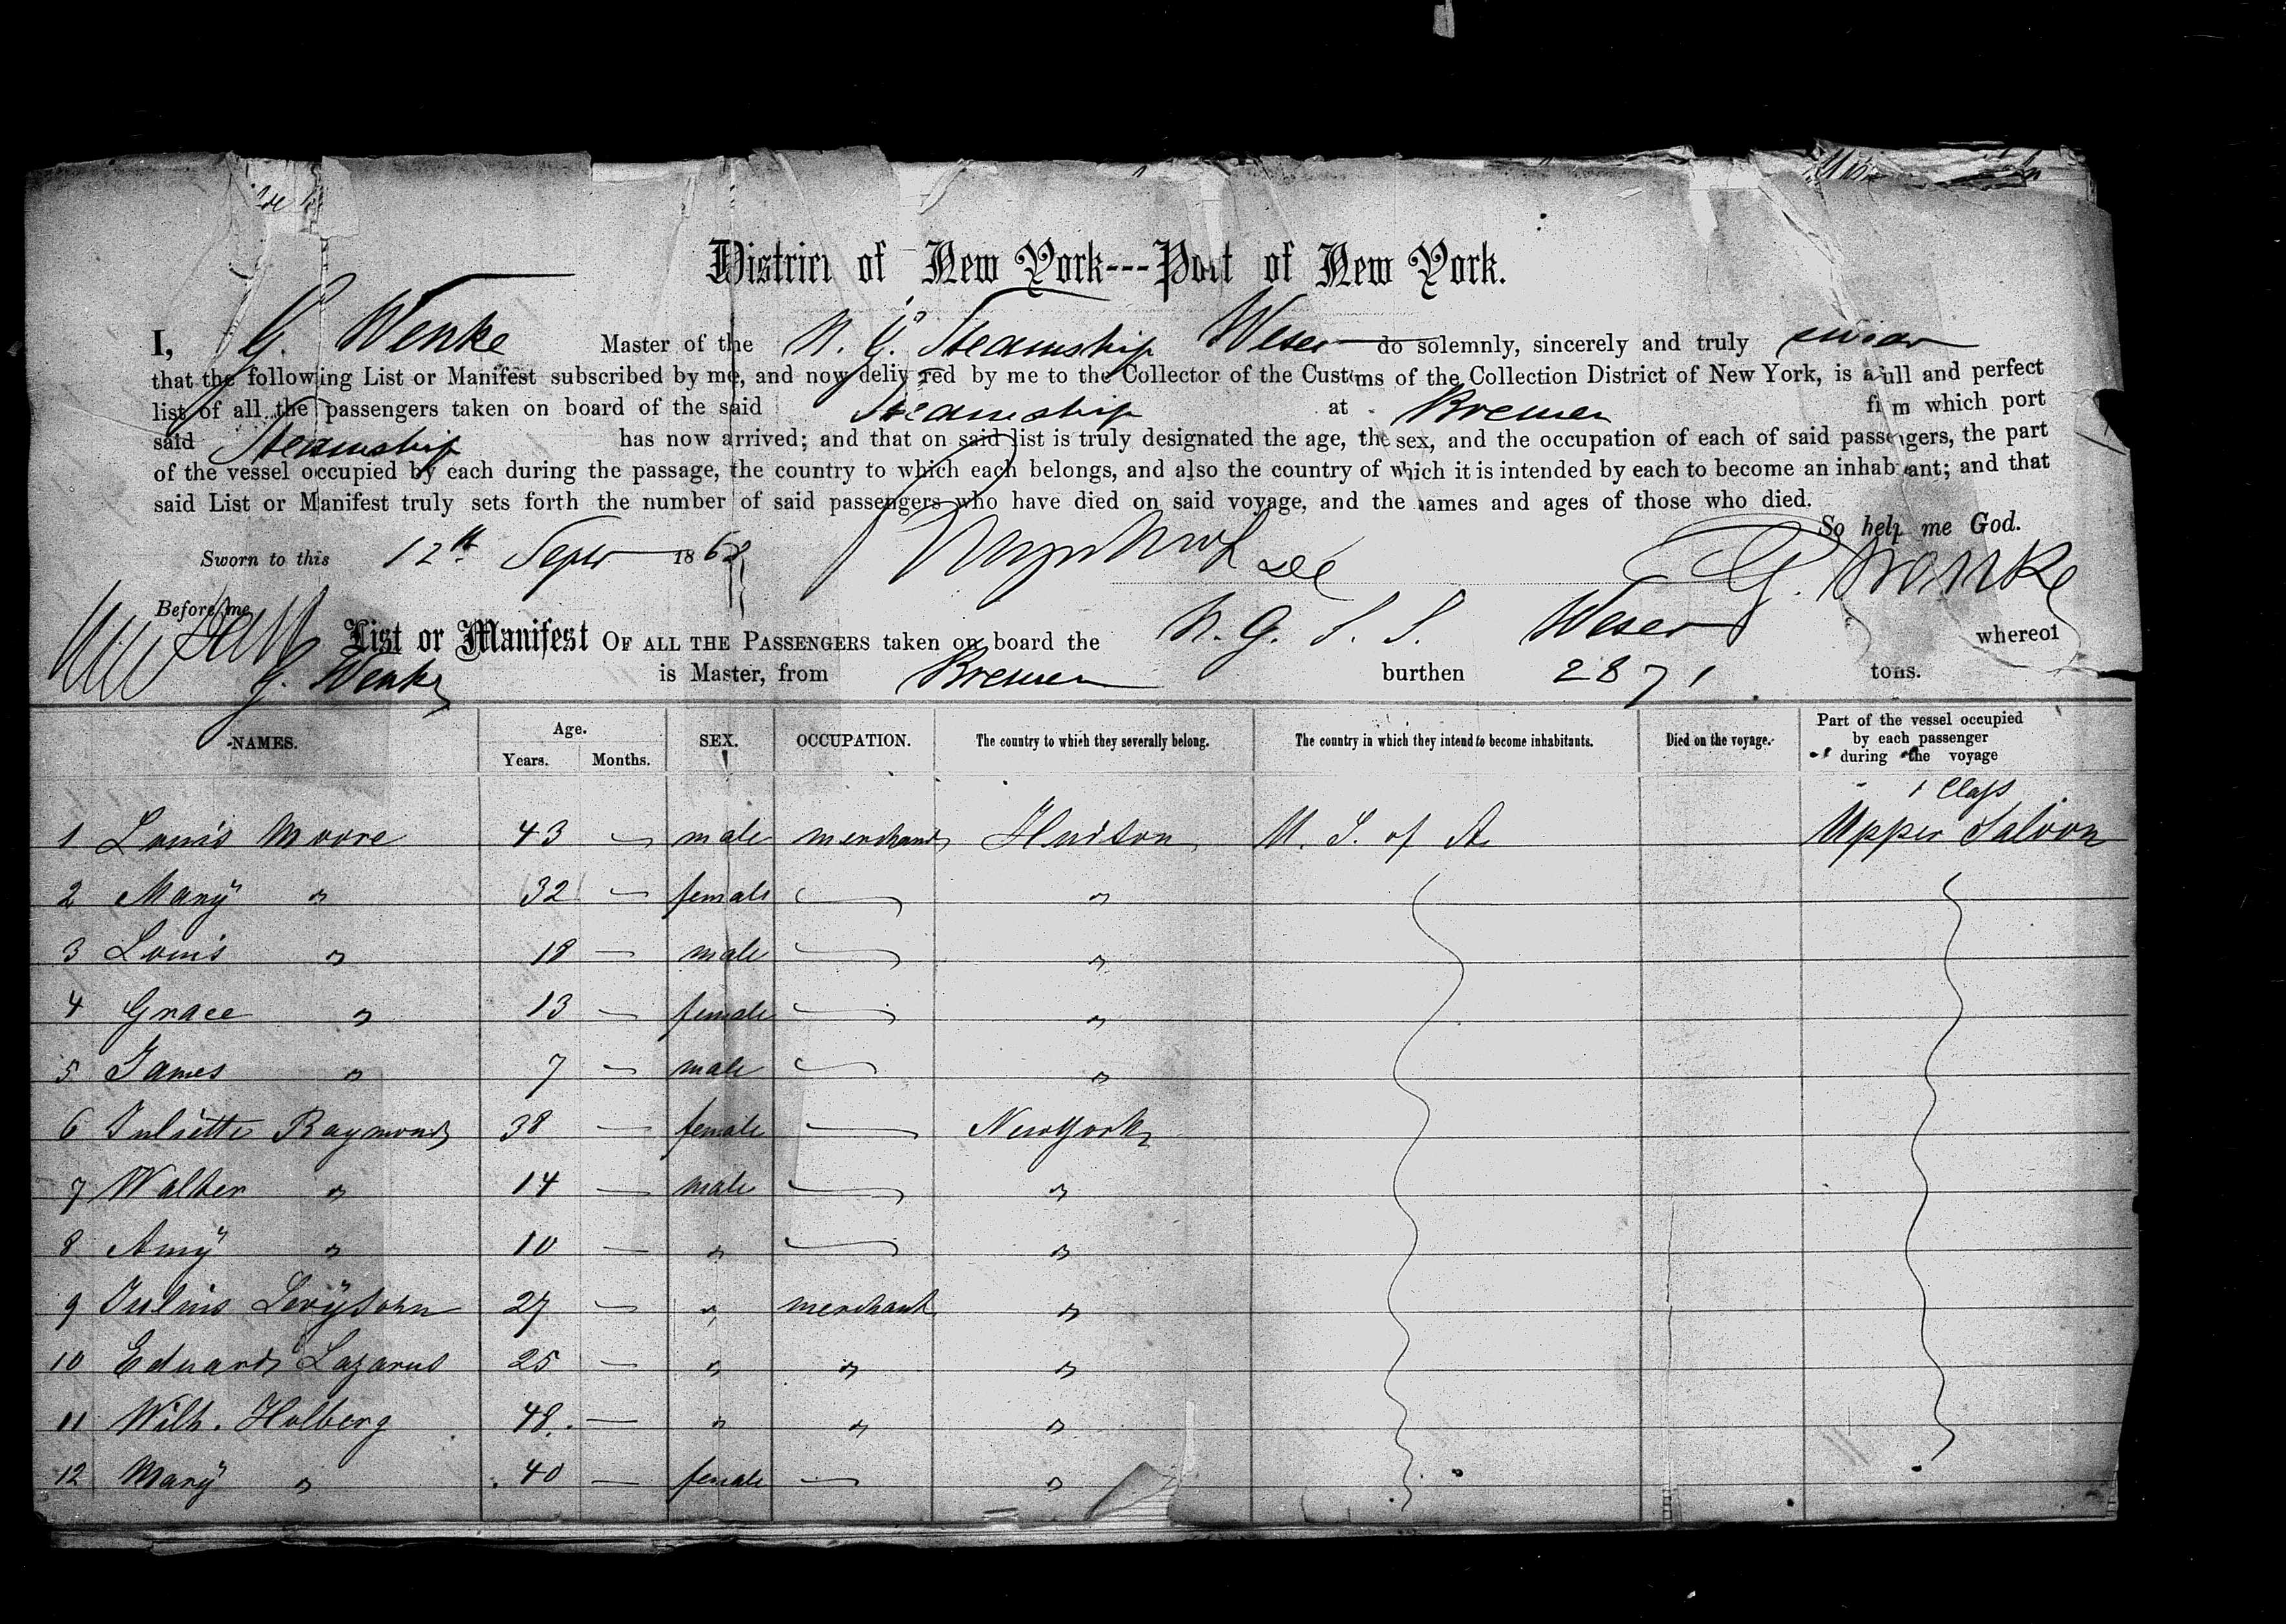 District of New York---Port of New York.
I, G. Wenke Master of the N. G. Steamship Weser do solemnly, sincerely and truly swear
that the following List or Manifest subscribed by me, and now delivered by me to the Collector of the Customs of the Collection District of New York, is a full and perfect
list of all the passengers taken on board of the said Steamship at Bremen from which port
said Steamship has now arrived; and that on said list is truly designated the age, the sex, and the occupation of each of said passengers, the part
of the vessel occupied by each during the passage, the country to which each belongs, and also the country of which it is intended by each to become an inhabitant; and that
said List or Manifest truly sets forth the number of said passengers who have died on said voyage, and the names and ages of those who died.
So help me God.
Sworn to this 12th Septr 1868 G. Wenke
Before me
List or Manifest OF ALL THE PASSENGERS taken on board the N. G. S. S. Weser whereof
G. Wenke is Master, from Bremen burthen 2871 tons.
NAMES. Age. Years. Months. SEX. OCCUPATION. The country to which they severally belong. The country in which they intend to become inhabitants. Died on the voyage. Part of the vessel occupied by each passenger during the voyage
1 Class
1 Louis Moore 43 — male merchant Hudson U. S. of A. Upper Saloon
2 Mary " 32 — female — "
3 Louis " 18 — male — "
4 Grace " 13 — female — "
5 James " 7 — male — "
6 Juliette Raymond 38 — female — New York
7 Walter " 14 — male — "
8 Amy " 10 — " — "
9 Julius Levysohn 27 — " merchant "
10 Eduard Lazarus 25 — " " "
11 Wilh. Holberg 48. — " " "
12 Mary " 40 — female — "